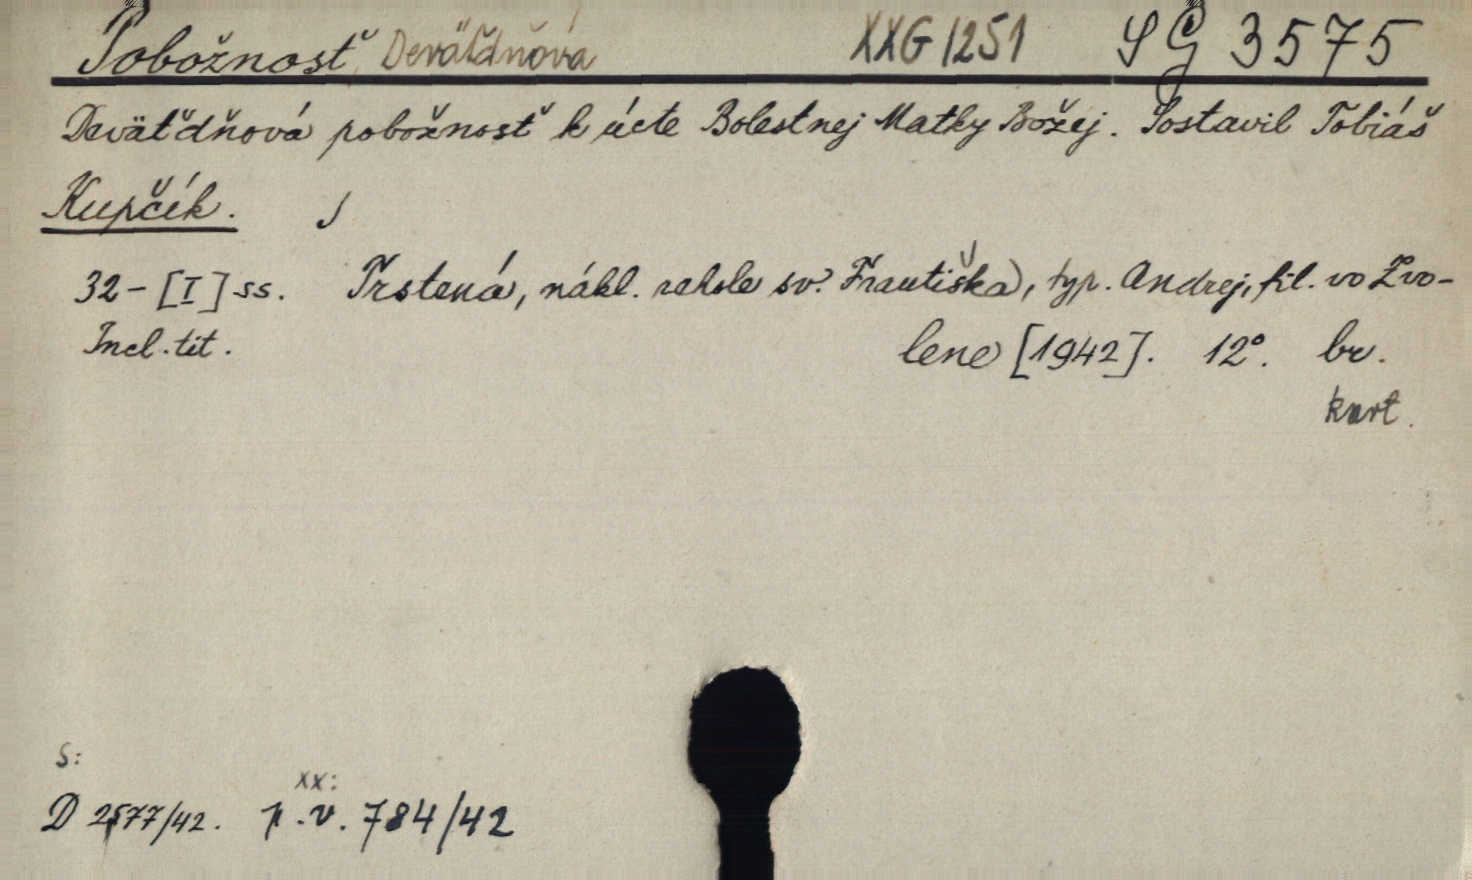 Pobožnosť Deväťdňová XXG 1251 SG 3575
Deväťdňová pobožnosť k úcte Bolestnej Matky Božej. Sostavil Tobiáš
Kupčík.
32-[I] ss. Trstená, nákl. rehole sv. Františka, typ. Andrej, fil. vo Zvo-
Incl. tit. lene [1942]. 12°. br.
kart.
S: xx:
D 2577/42. p.v. 784/42